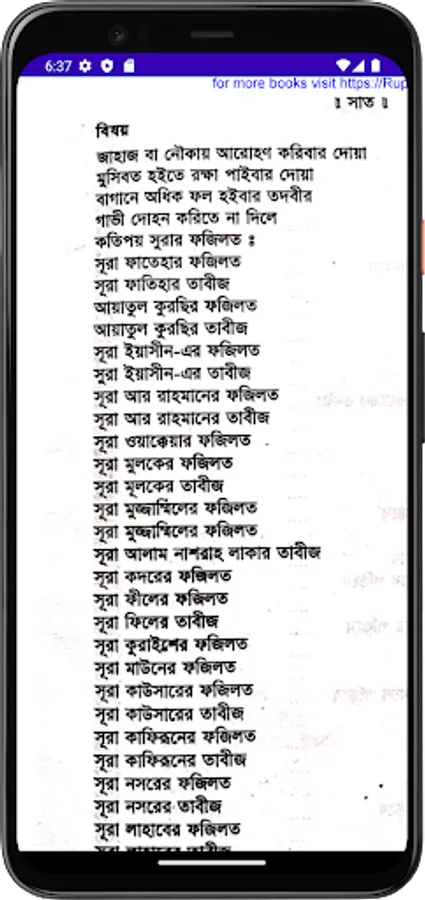 6:37
for more books visit https://Rup
॥ সাত ॥
বিষয়
জাহাজ বা নৌকায় আরোহণ করিবার দোয়া
মুসিবত হইতে রক্ষা পাইবার দোয়া
বাগানে অধিক ফল হইবার তদবীর
গাভী দোহন করিতে না দিলে
কতিপয় সুরার ফজিলত ঃ
সূরা ফাতেহার ফজিলত
সূরা ফাতিহার তাবীজ
আয়াতুল কুরছির ফজিলত
আয়াতুল কুরছির তাবীজ
সূরা ইয়াসীন-এর ফজিলত
সুরা ইয়াসীন-এর তাবীজ
সূরা আর রাহমানের ফজিলত
সূরা আর রাহমানের তাবীজ
সূরা ওয়াক্কেয়ার ফজিলত
সূরা মুলকের ফজিলত
সূরা মূলকের তাবীজ
সূরা মুজ্জাম্মিলের ফজিলত
সূরা মুজ্জাম্মিলের ফজিলত
সূরা আলাম নাশরাহ লাকার তাবীজ
সূরা কদরের ফজিলত
সূরা ফীলের ফজিলত
সূরা ফিলের তাবীজ
সূরা কুরাইশের ফজিলত
সূরা মাউনের ফজিলত
সূরা কাউসারের ফজিলত
সূরা কাউসারের তাবীজ
সূরা কাফিরূনের ফজিলত
সূরা কাফিরূনের তাবীজ
সূরা নসরের ফজিলত
সূরা নসরের তাবীজ
সূরা লাহাবের ফজিলত